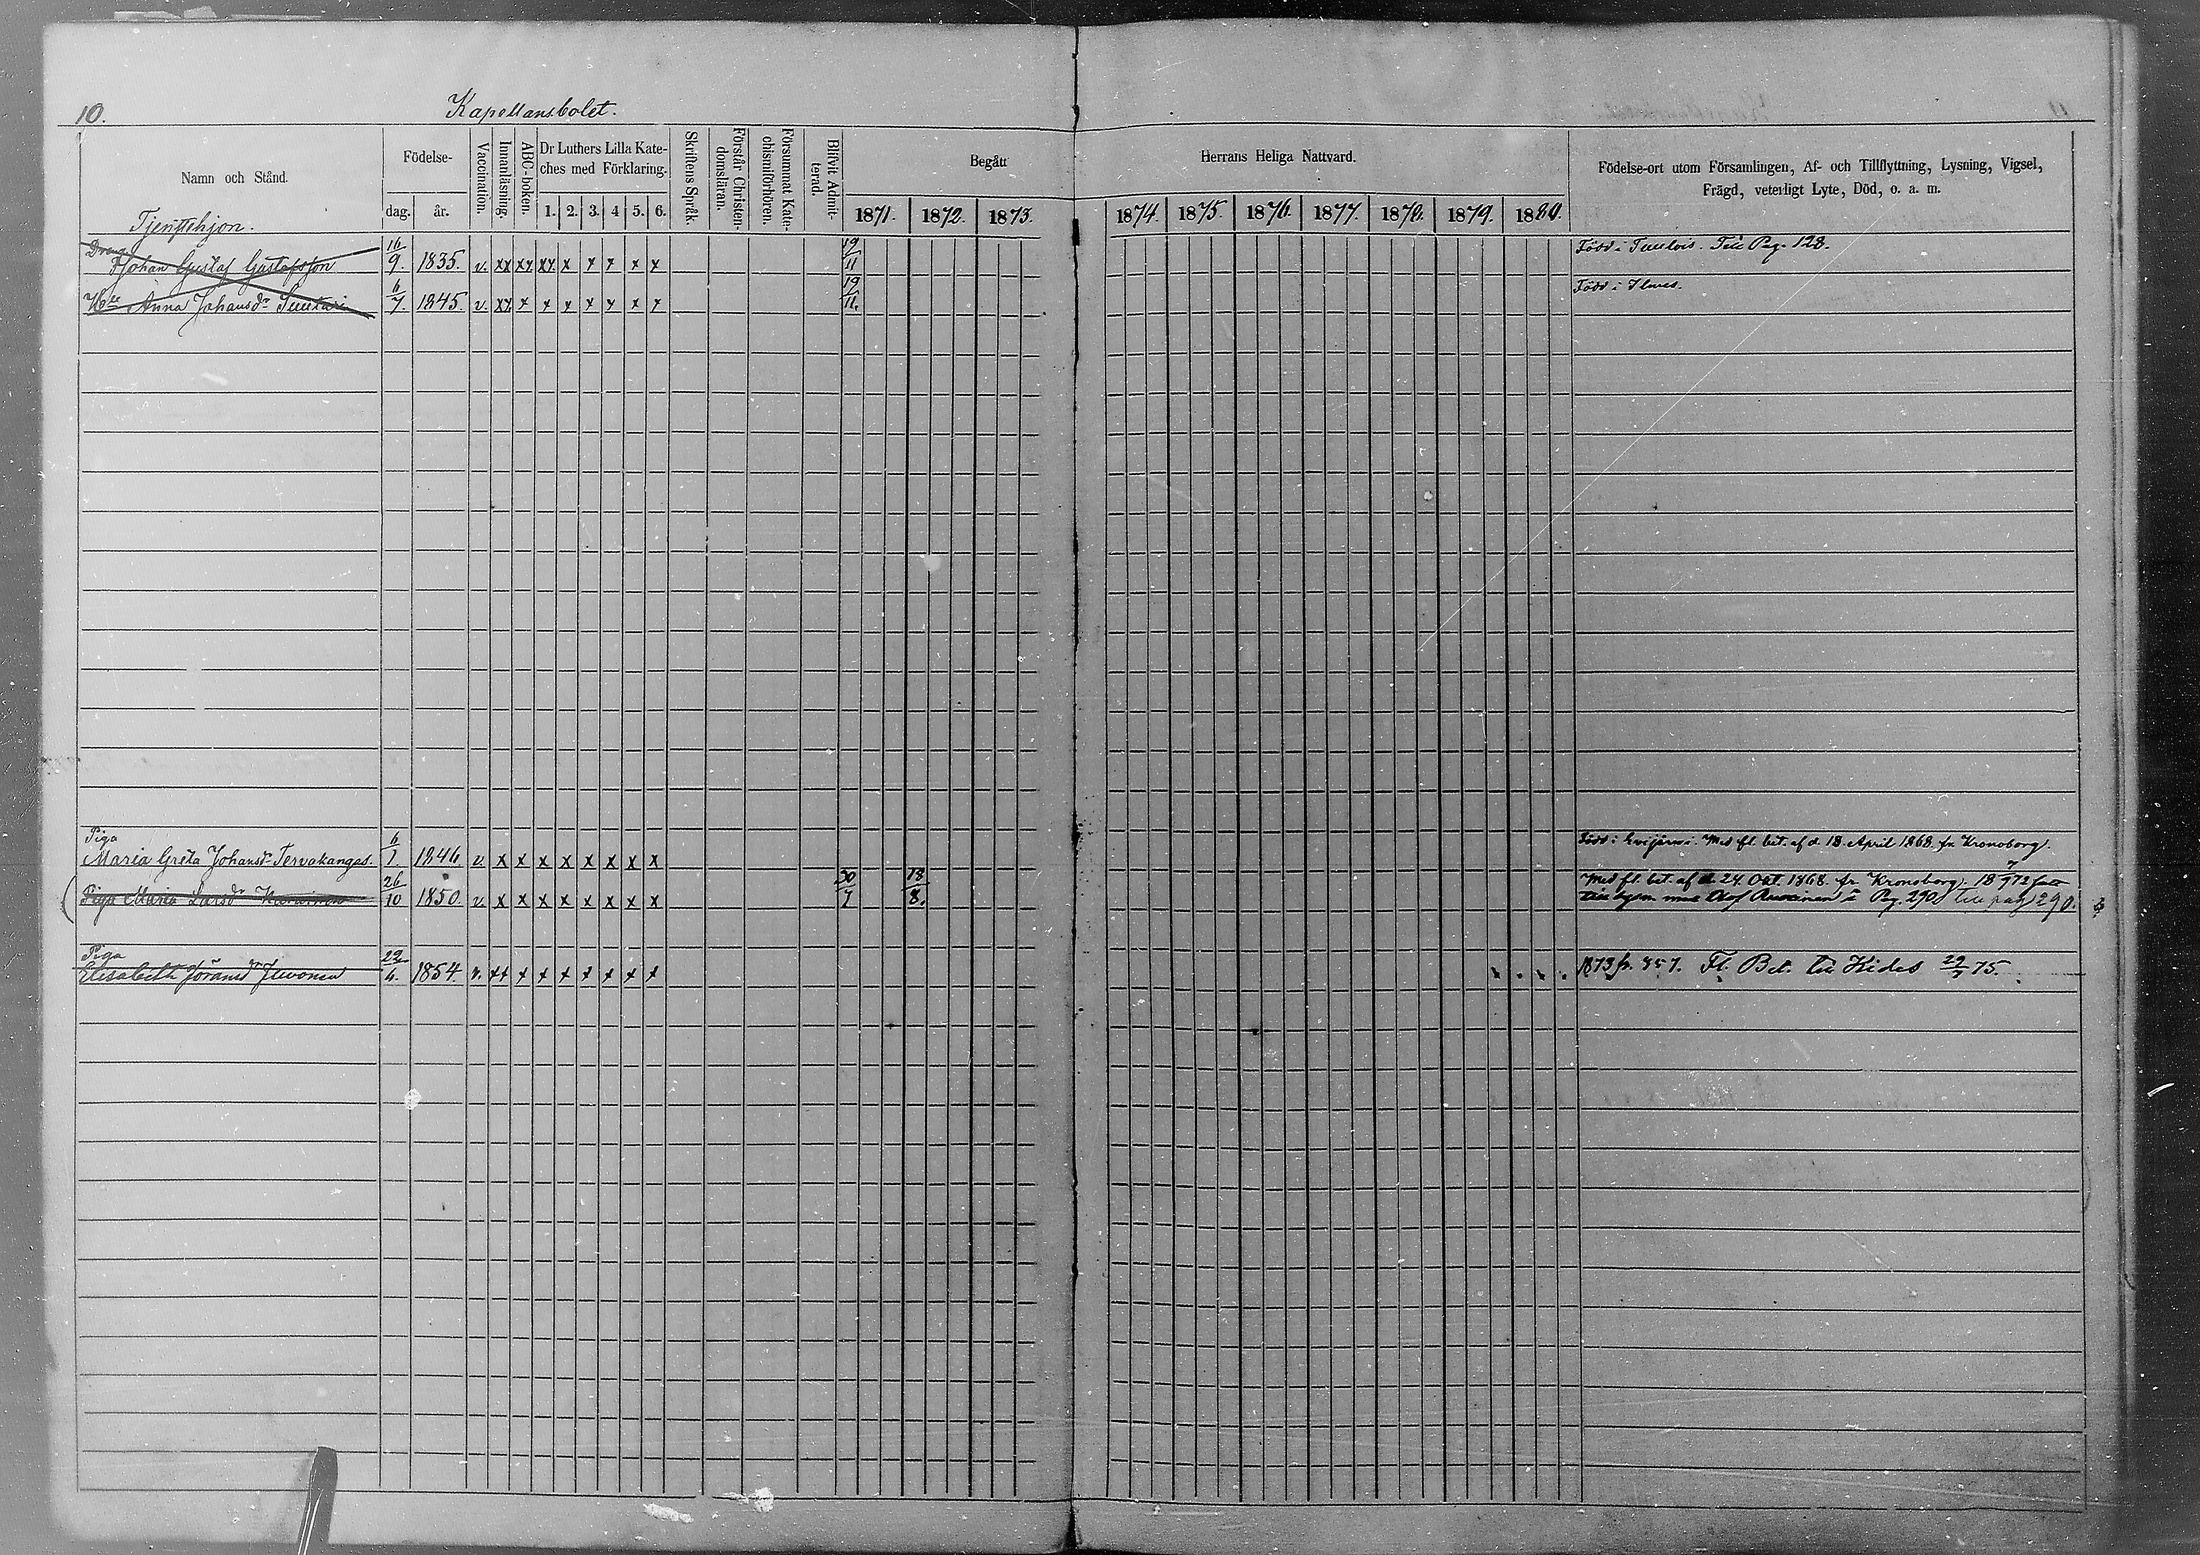 10.
Kapellansbolet.
11
Namn och Stånd.
Födelse-
dag.
år.
Vaccination.
Innanläsning.
ABC-boken.
Dr Luthers Lilla Kate-
ches med Förklaring.
1. 2. 3. 4 5. 6.
Skriftens Språk.
Förstår Christen-
domsläran.
Försummat Kate-
chismiförhören.
Blifvit Admit-
terad.
Begått
1871. 1872. 1873.
Herrans Heliga Nattvard.
1874. 1875. 1876. 1877. 1878. 1879. 1880.
Födelse-ort utom Församlingen, Af- och Tillflyttning, Lysning, Vigsel,
Frägd, veterligt Lyte, Död, o. a. m.
Tjenstehjon.
Dreng
Johan Gustaf Gustafsson 16/9. 1835. v. xx xx xx x x x x x 19/11 Född i Tuulois. Till Pag. 128.
Anna Johansdr 6/7. 1845. v. xx x x x x x x x 19/11. Född i
Piga
Maria Greta Johansdr Tervakangas. 6/1. 1846 v. x x x x x x x x Född i Evijärvi. Med fl. bet. af d. 18 April 1868. fr. Kronoborg.
Piga Maria Larsdr 26/10 1850. v. x x x x x x x x 30/7 18/8. Med fl. bet. af d 24 Okt. 1868. fr. Kronoborg. 18 7/72
med Olof i Pag. 290. till pag 290.
Piga
Elisabeth Göransdr 22/4. 1854. v. xx x x x x x x 1873 fr. 357. Fl. Bet. till Kides 29/ 75.